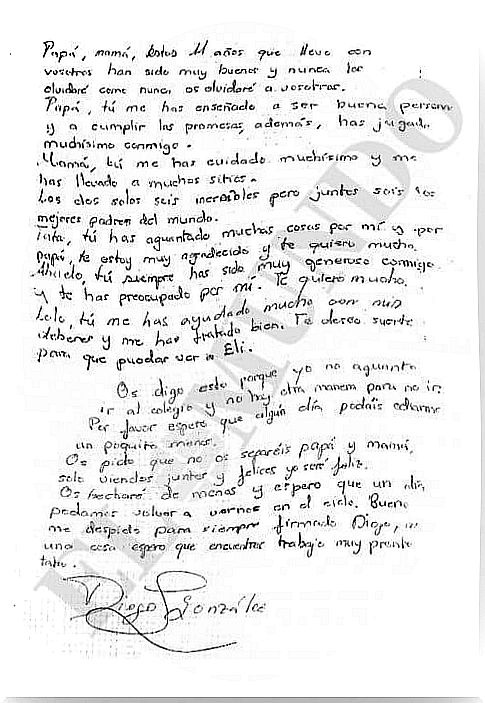 Papá, mamá, estos 11 años que llevo con
vosotros han sido muy buenos y nunca los
olvidaré como nunca os olvidaré a vosotros.
Papá, tú me has enseñado a ser buena persona
y a cumplir las promesas, además, has jugado
muchísimo conmigo.
Mamá, tú me has cuidado muchísimo y me
has llevado a muchos sitios.
Los dos solos sois increíbles pero juntos sois los
mejores padres del mundo.
Tata, tú has aguantado muchas cosas por mí y por
papá, te estoy muy agradecido y te quiero mucho.
Abuelo, tú siempre has sido muy generoso conmigo
y te has preocupado por mí. Te quiero mucho.
Lolo, tú me has ayudado mucho con mis
deberes y me has tratado bien. Te deseo suerte
para que puedas ver a Eli.
Os digo esto porque yo no aguanto
ir al colegio y no hay otra manera para no ir.
Por favor espero que algún día podáis odiarme
un poquito menos.
Os pido que no os separéis papá y mamá,
solo viendoos juntos y felices yo seré feliz.
Os hecharé de menos y espero que un día
podamos volver a vernos en el cielo. Bueno
me despido para siempre firmado Diego,
una cosa espero que encuentres trabajo muy pronto
tata.
Diego González
EL MUNDO